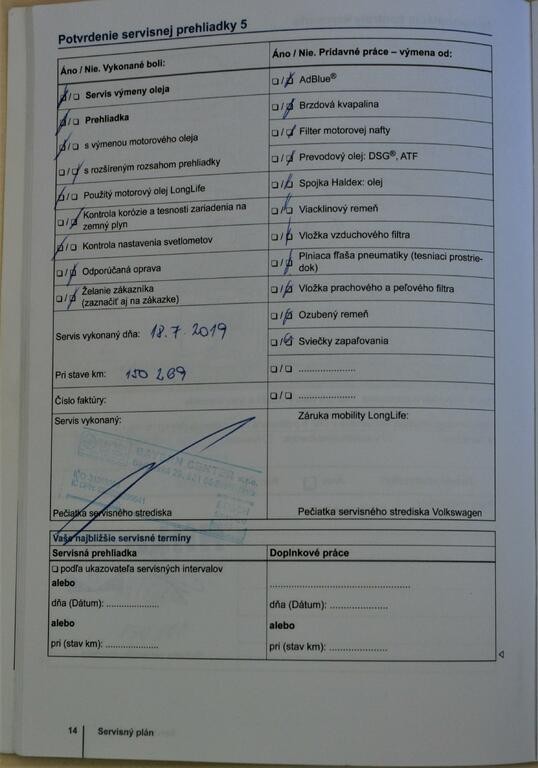 Potvrdenie servisnej prehliadky 5
Áno / Nie. Vykonané boli:
❏/❏ Servis výmeny oleja
❏/❏ Prehliadka
❏/❏ s výmenou motorového oleja
❏/❏ s rozšíreným rozsahom prehliadky
❏/❏ Použitý motorový olej LongLife
❏/❏ Kontrola korózie a tesnosti zariadenia na
zemný plyn
❏/❏ Kontrola nastavenia svetlometov
❏/❏ Odporúčaná oprava
❏/❏ Želanie zákazníka
(zaznačiť aj na zákazke)
Servis vykonaný dňa: 18.7.2019
Pri stave km: 150 269
Číslo faktúry:
Servis vykonaný:
BAVARIN CENTER
Pečiatka servisného strediska
Áno / Nie. Prídavné práce – výmena od:
❏/❏ AdBlue®
❏/❏ Brzdová kvapalina
❏/❏ Filter motorovej nafty
❏/❏ Prevodový olej: DSG®, ATF
❏/❏ Spojka Haldex: olej
❏/❏ Viacklinový remeň
❏/❏ Vložka vzduchového filtra
❏/❏ Plniaca fľaša pneumatiky (tesniaci prostrie-
dok)
❏/❏ Vložka prachového a peľového filtra
❏/❏ Ozubený remeň
❏/❏ Sviečky zapaľovania
❏/❏ .....................
❏/❏ .....................
Záruka mobility LongLife:
Pečiatka servisného strediska Volkswagen
Vaše najbližšie servisné termíny
Servisná prehliadka
❏ podľa ukazovateľa servisných intervalov
alebo
dňa (Dátum): ...................
alebo
pri (stav km): ...................
Doplnkové práce
....................................................
dňa (Dátum): .....................
alebo
pri (stav km): .....................
14
Servisný plán